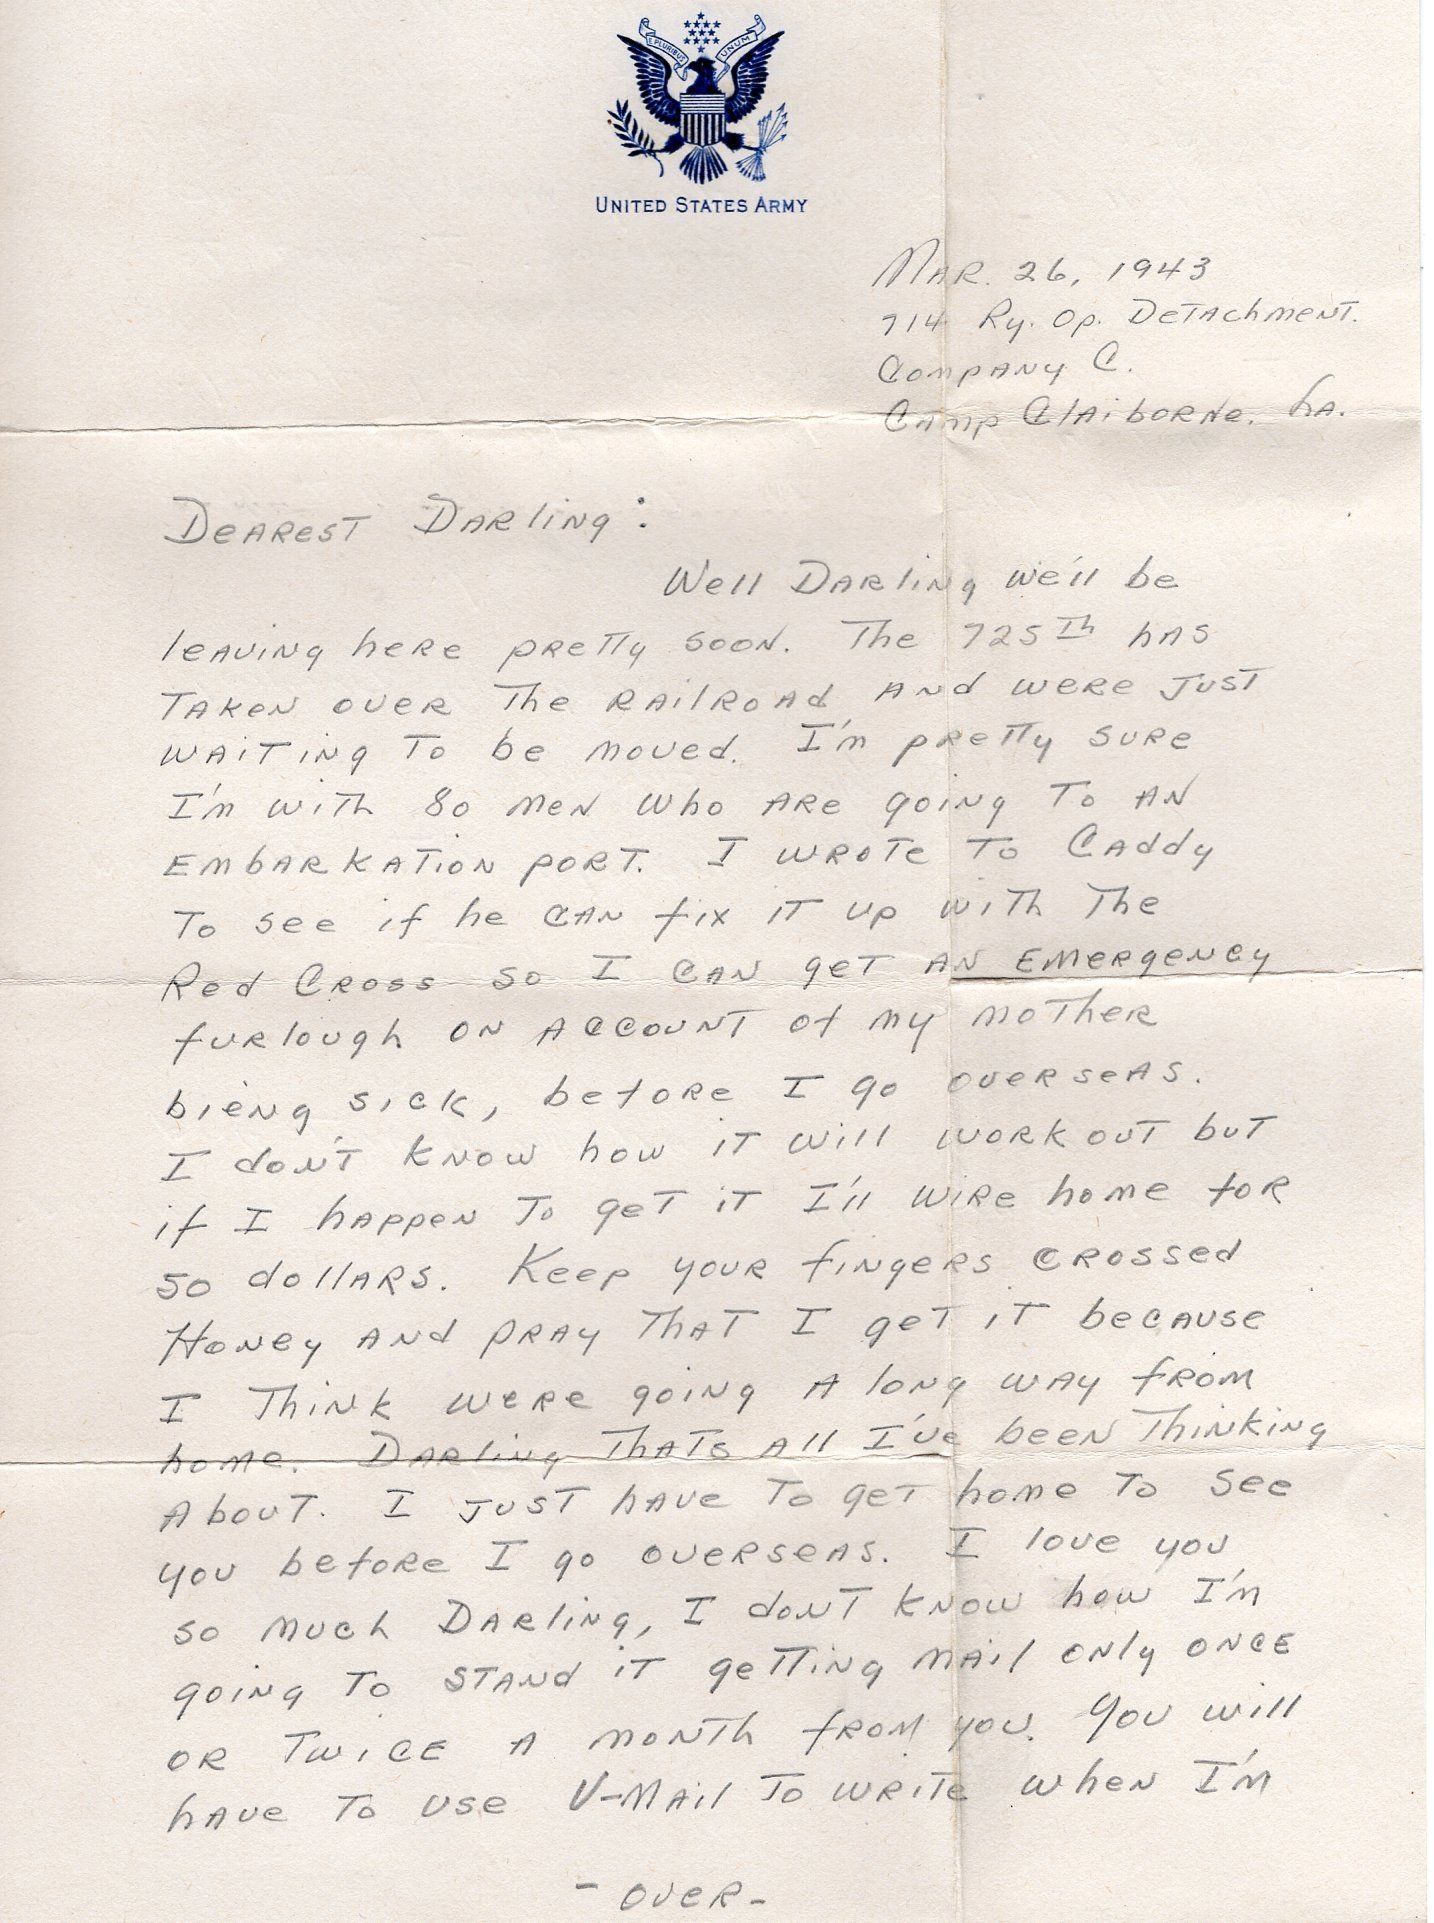 E PLURIBUS UNUM
UNITED STATES ARMY
MAR. 26, 1943
714 Ry. Op. Detachment.
Company C.
Camp Claiborne, La.
Dearest Darling:
Well Darling we'll be
leaving here pretty soon. The 725th has
taken over the railroad and were just
waiting to be moved. I'm pretty sure
I'm with 80 men who are going to an
embarkation port. I wrote to Caddy
to see if he can fix it up with the
Red Cross so I can get an emergency
furlough on account of my mother
bieng sick, before I go overseas.
I don't know how it will work out but
if I happen to get it I'll wire home for
50 dollars. Keep your fingers crossed
Honey and pray that I get it because
I think were going a long way from
home. Darling thats all I've been thinking
about. I just have to get home to see
you before I go overseas. I love you
so much Darling, I dont know how I'm
going to stand it getting mail only once
or twice a month from you. You will
have to use V-Mail to write when I'm
- over -